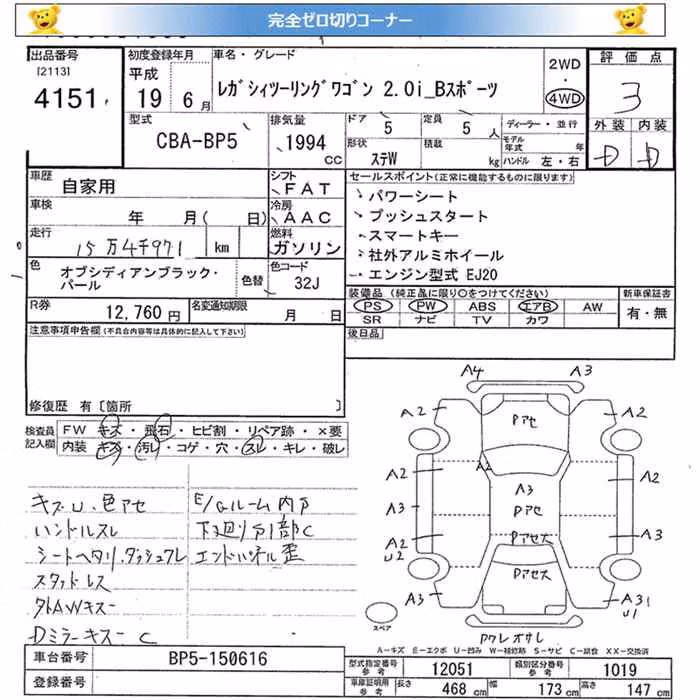 完全ゼロ切りコーナー
出品番号
[2113]
4151
初度登録年月
平成
19 6月
車名・グレード
レガシィツーリングワゴン 2.0i_Bスポーツ
2WD
・
4WD
評価点
3
型式
CBA-BP5
排気量
1994
CC
ドア
5
定員
5 人
ディーラー・並行
形状
ステW
積載
kg
モデル年式 年
ハンドル 左・右
外装 内装
D D
車歴
自家用
シフト
FAT
車検
年 月( 日)
冷房
AAC
走行
15万4千971 km
燃料
ガソリン
色
オブシディアンブラック・パール
色替
色コード
32J
R券
12,760円
名変通知期限
月 日
セールスポイント(正常に機能するものに限ります)
パワーシート
プッシュスタート
スマートキー
社外アルミホイール
エンジン型式 EJ20
装備品 (純正品に限り○をつけてください)
PS PW ABS エアB AW
SR ナビ TV カワ
新車保証書
有・無
後日品
注意事項申告欄(不具合内容等は具体的に記入して下さい)
修復歴 有〔箇所 〕
検査員記入欄
FW キズ・飛石・ヒビ割・リペア跡・×要
内装 キズ・汚レ・コゲ・穴・スレ・キレ・破レ
キズU、色アセ
ハンドルスレ
シートヘタリ、ダッシュワレ
スタッドレス
外AWキズー
DミラーキズーC
E/Gルーム内サ
下廻リ外部C
エンドパネル歪
A4 A3
A2 Pアセ A2
A2 A2 A2
A3 A3 Pアセ A3
A2 U2 Pアセス
A3 Pアセス A3 U1
スペア
A-キズ E-エクボ U-凹み W-補修跡 S-サビ C-腐食 XX-交換済
車台番号
BP5-150616
登録番号
型式指定番号 参考
12051
類別区分番号 参考
1019
車庫証明用 参考
長さ 468 cm
幅 173 cm
高さ 147 cm